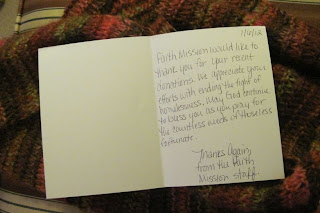 1/9/12
Faith Mission would like to
thank you for your recent
donations. We appreciate your
efforts with ending the fight of
homelessness. May God continue
to bless you as you pray for
the countless needs of those less
fortunate.
Thanks Again,
from the Faith
Mission staff.